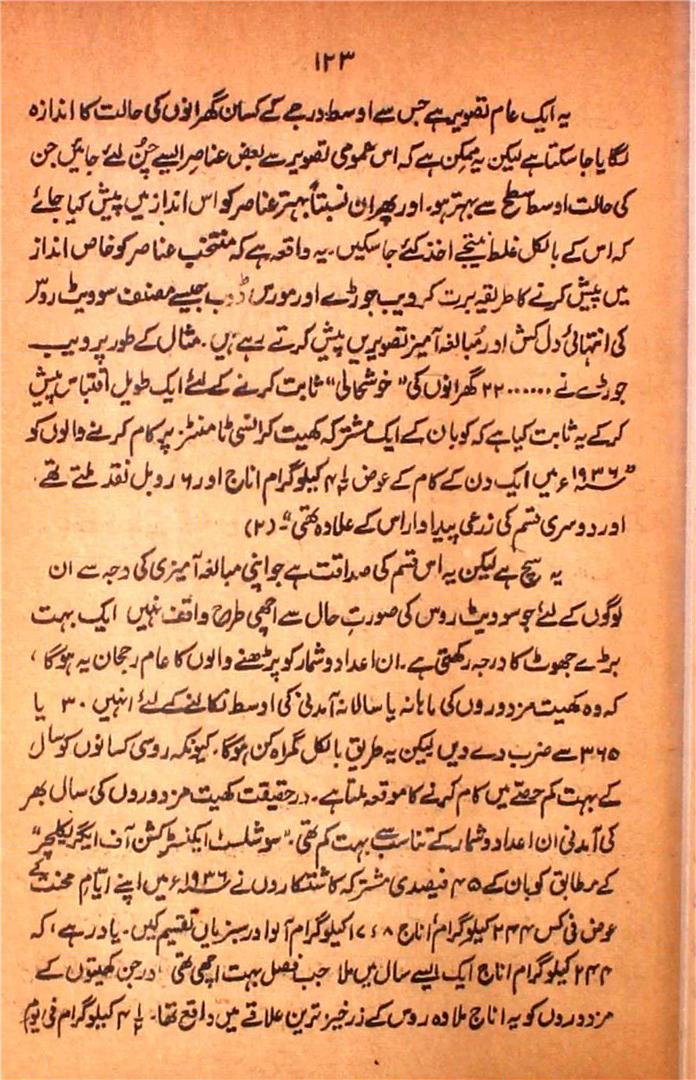 ۱۲۳
یہ ایک عام تصویر ہے جس سے اوسط درجے کے کسان گھرانوں کی حالت کا اندازہ
لگایا جا سکتا ہے لیکن یہ ممکن ہے کہ اس عمومی تصویر سے بعض عناصر ایسے چُن لئے جائیں جن
کی حالت اوسط سطح سے بہتر ہو۔ اور پھر ان نسبتاً بہتر عناصر کو اس انداز میں پیش کیا جائے
کہ اس کے بالکل غلط نتیجے اخذ کئے جا سکیں۔ یہ واقعہ ہے کہ منتخب عناصر کو خاص انداز
میں پیش کرنے کا طریقہ برت کر ویب جوڑے اور مورس ڈوب جیسے مصنف سوویٹ روس
کی انتہائی دل کش اور مُبالغہ آمیز تصویریں پیش کرتے رہے ہیں۔ مثال کے طور پر ویب
جوڑے نے ۲۲۰۰۰۰۰۰ گھرانوں کی "خوشحالی" ثابت کرنے کے لئے ایک طویل اقتباس پیش
کر کے یہ ثابت کیا ہے کہ کوبان کے ایک مشترکہ کھیت کرانسی ٹامنٹز پر کام کرنے والوں کو
"۱۹۳۶ء میں ایک دن کے کام کے عوض ۴½ کیلوگرام اناج اور ۶ روبل نقد ملتے تھے۔
اور دوسری قسم کی زرعی پیداوار اس کے علاوہ تھی"۔ (۲)
یہ سچ ہے لیکن یہ اس قسم کی صداقت ہے جو اپنی مبالغہ آمیزی کی وجہ سے ان
لوگوں کے لئے جو سوویٹ روس کی صورتِ حال سے اچھی طرح واقف نہیں ایک بہت
بڑے جھوٹ کا درجہ رکھتی ہے۔ ان اعداد و شمار کو پڑھنے والوں کا عام رجحان یہ ہوگا،
کہ وہ کھیت مزدوروں کی ماہانہ یا سالانہ آمدنی کی اوسط نکالنے کے لئے انہیں ۳۰ یا
۳۶۵ سے ضرب دے دیں لیکن یہ طریق بالکل گمراہ کن ہوگا۔ کیونکہ روسی کسانوں کو سال
کے بہت کم حصّے میں کام کرنے کا موقعہ ملتا ہے۔ درحقیقت کھیت مزدوروں کی سال بھر
کی آمدنی ان اعداد و شمار کے تناسب سے بہت کم تھی۔ "سوشلسٹ ایکنسٹرکشن آف ایگریکلچر"
کے مطابق کوبان کے ۴۵ فیصدی مشترکہ کاشتکاروں نے ۱۹۳۶ء میں اپنے ایّامِ محنت کے
عوض فی کس ۲۴۴ کیلوگرام اناج ۱۷۶۸ کیلوگرام آلو اور سبزیاں تقسیم کیں۔ یاد رہے، کہ
۲۴۴ کیلوگرام اناج ایک ایسے سال میں ملا جب فصل بہت اچھی تھی اور جن کھیتوں کے
مزدوروں کو یہ اناج ملا وہ روس کے زرخیز ترین علاقے میں واقع تھا۔ ۴½ کیلوگرام فی یوم